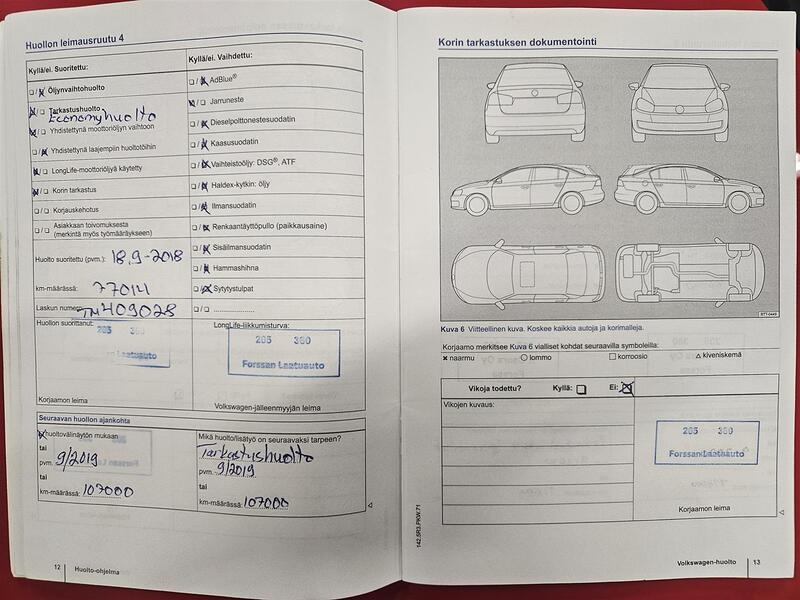 Huollon leimausruutu 4
Kyllä/ei. Suoritettu:
Kyllä/ei. Vaihdettu:
Öljynvaihtohuolto
Tarkastushuolto
Economyhuolto
Yhdistettynä moottoriöljyn vaihtoon
Yhdistettynä laajempiin huoltotöihin
LongLife-moottoriöljyä käytetty
Korin tarkastus
Korjauskehotus
Asiakkaan toivomuksesta
(merkintä myös työmääräykseen)
AdBlue®
Jarruneste
Dieselpolttonestesuodatin
Kaasusuodatin
Vaihteistoöljy: DSG®, ATF
Haldex-kytkin: öljy
Ilmansuodatin
Renkaantäyttöpullo (paikkausaine)
Sisäilmansuodatin
Hammashihna
Sytytystulpat
Huolto suoritettu (pvm.) 18.9-2018
km-määrässä: 77014
Laskun numero: 409028
Huollon suorittanut:
205 380
Forssan Laatuauto
Korjaamon leima
LongLife-liikkumisturva:
205 380
Forssan Laatuauto
Volkswagen-jälleenmyyjän leima
Seuraavan huollon ajankohta
huoltovälinäytön mukaan
tai
pvm. 9/2019
tai
km-määrässä: 107000
Mikä huolto/lisätyö on seuraavaksi tarpeen?
Tarkastushuolto
pvm. 9/2019
tai
km-määrässä: 107000
12 Huolto-ohjelma
Korin tarkastuksen dokumentointi
Kuva 6 Viitteellinen kuva. Koskee kaikkia autoja ja korimalleja.
Korjaamo merkitsee Kuva 6 vialliset kohdat seuraavilla symboleilla:
x naarmu ○ lommo □ korroosio △ kiveniskemä
Vikoja todettu? Kyllä: Ei:
Vikojen kuvaus:
205 380
Forssan Laatuauto
Korjaamon leima
142.5R3.PKW.71
Volkswagen-huolto 13